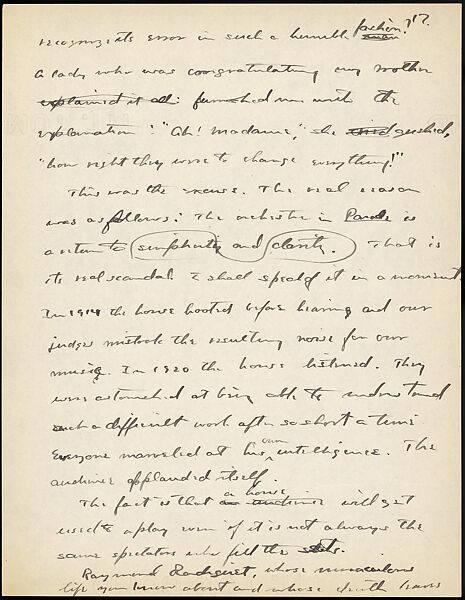 17.
recognize its error in such a humble fashion!"
a lady who was congratulating my mother
explained it all: furnished me with the
explanation: "Ah! Madame", she cried gushed,
"how right they were to change everything!"
This was the excuse. The real reason
was as follows: The orchestra in Parade is
a return to simplicity and clarity. That is
its real scandal. I shall speak of it in a moment.
In 1917 the house hooted before hearing and our
judges mistook the resulting noise for our
music. In 1920 the house listened. They
were astonished at being able to understand
such a difficult work after so short a time
Everyone marveled at his own intelligence. The
audience applauded itself.
The fact is that a house an audience will get
used to a play even if it is not always the
same spectators who fill the seats.
Raymond Radiguet, whose miraculous
life you know about and whose death leaves